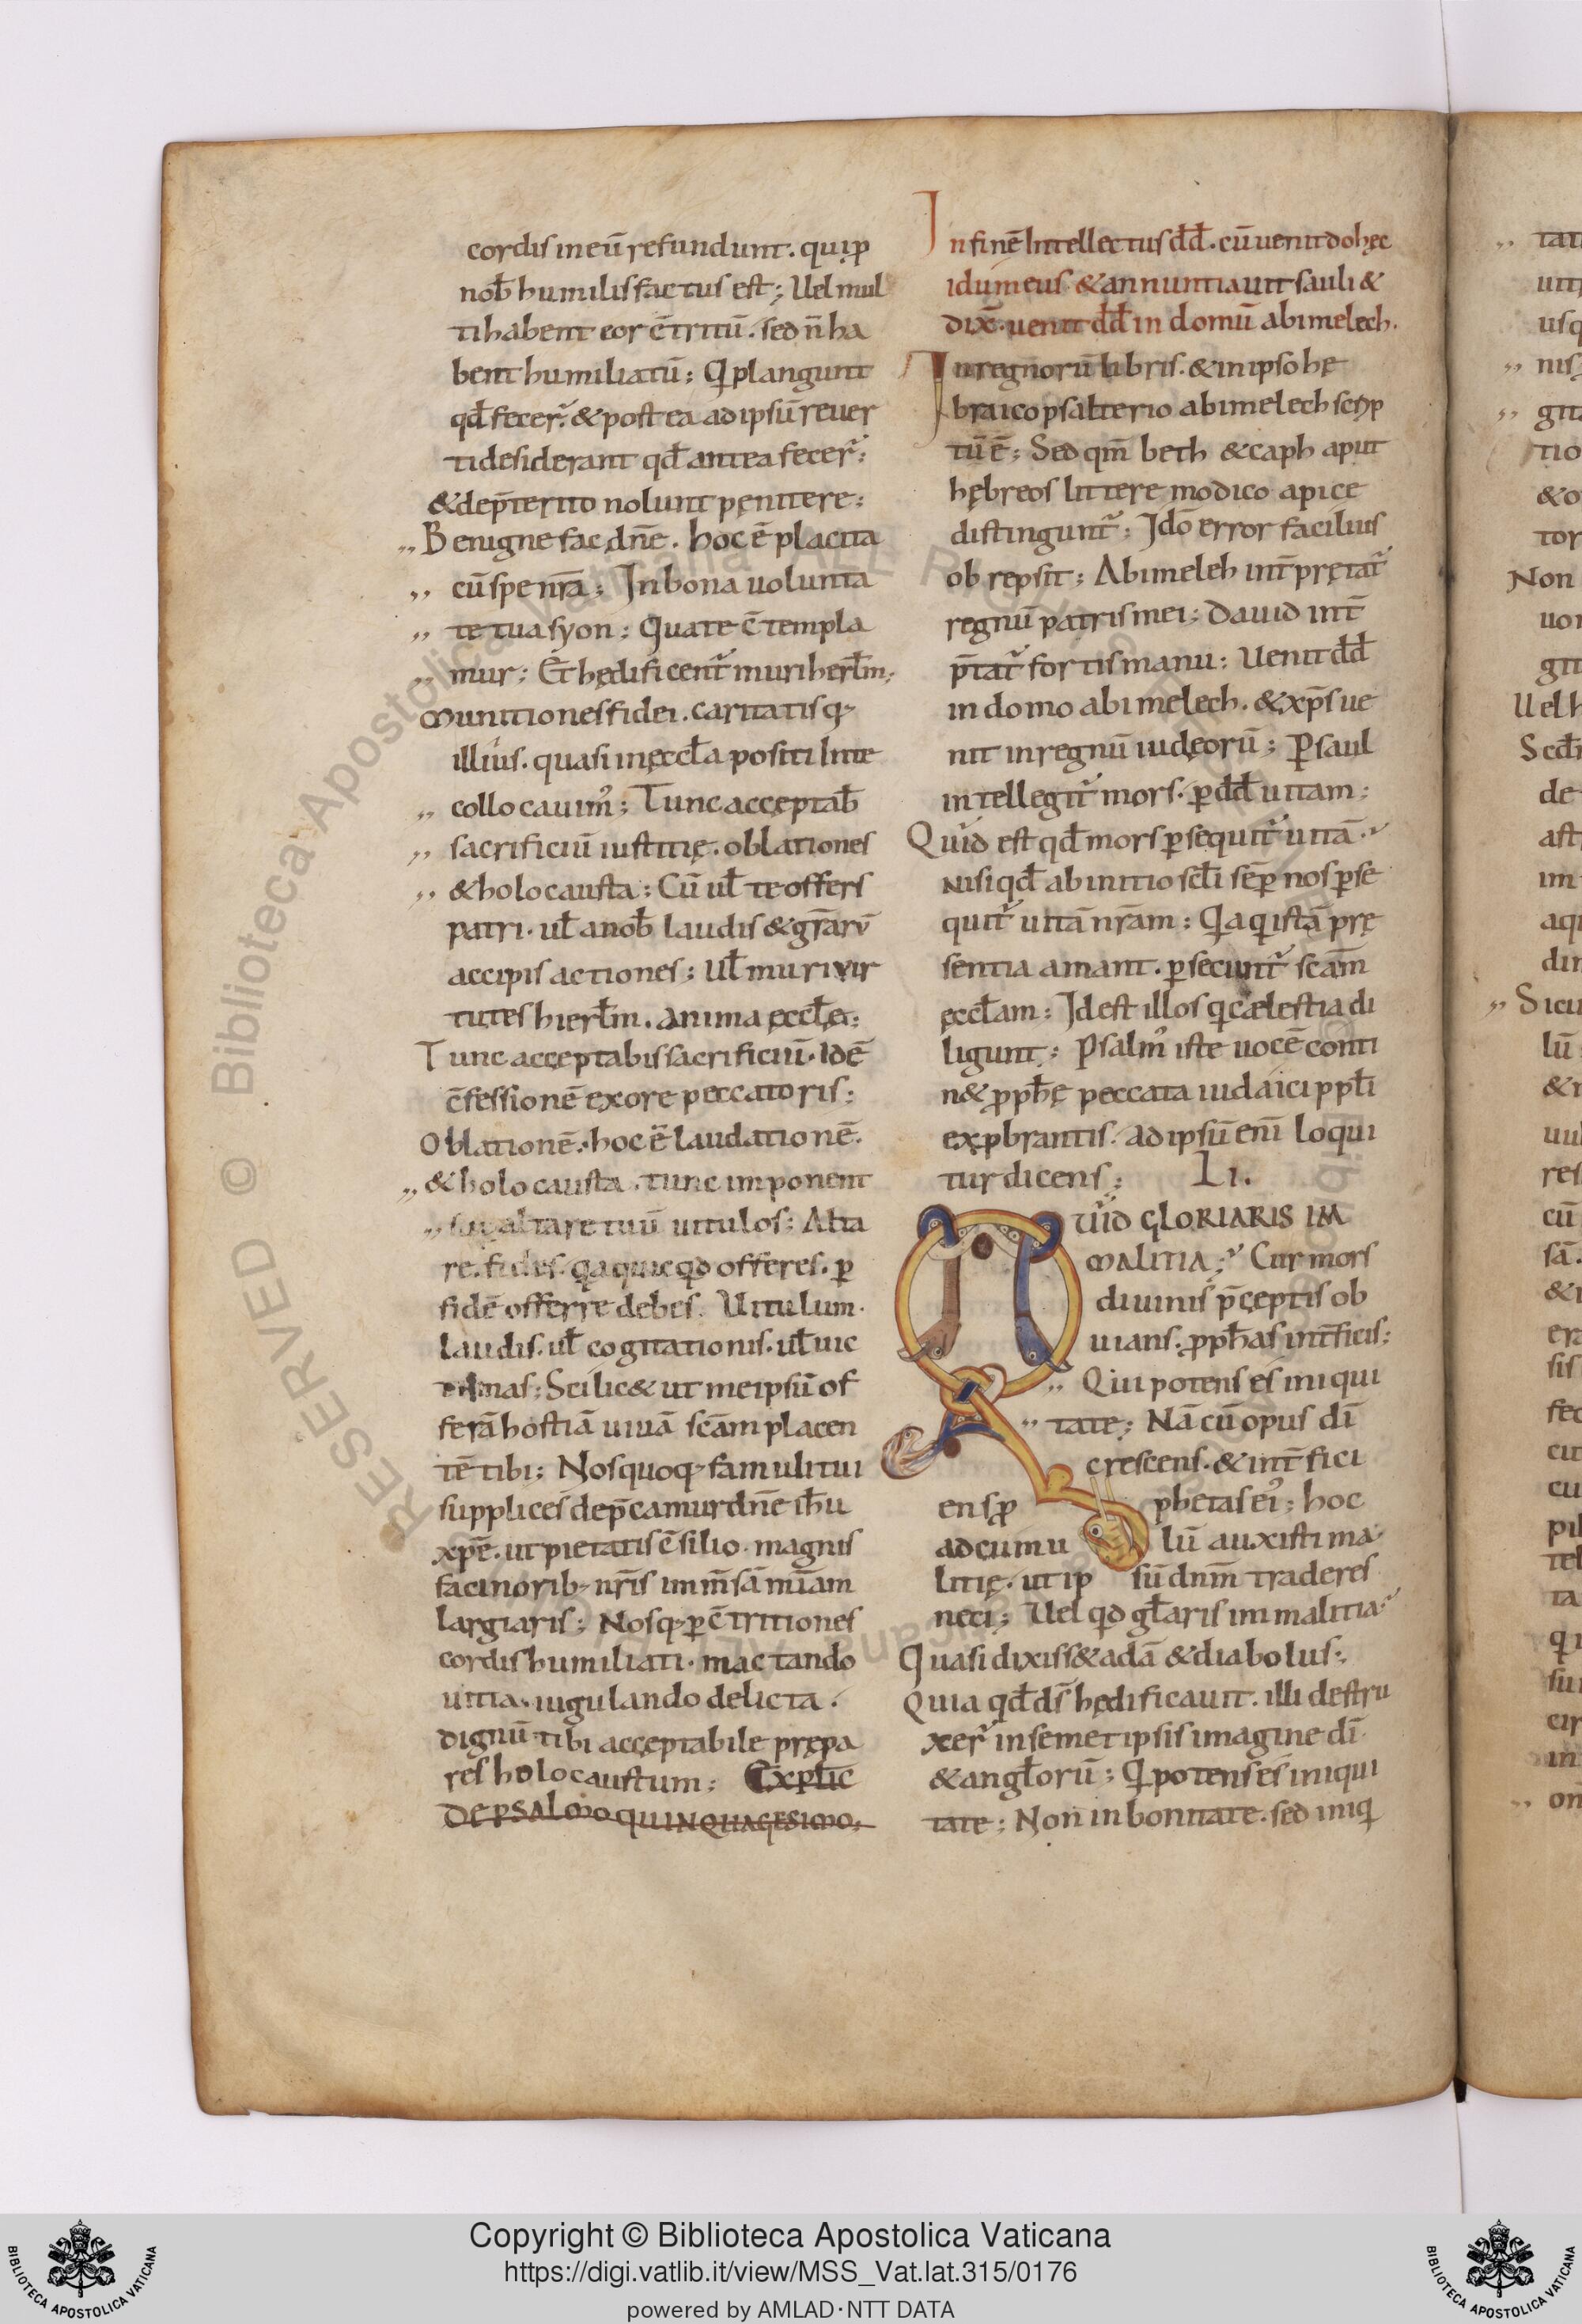 cordis in eū refundunt. qui ꝓ
nob̄ humilis factus est; Uel mul
ti habent cor c̄tritū. sed n̄ ha
bent humiliatū; Qͥ plangunt
qđ fecer̄. & post ea ad ipsū reuer
ti desiderant qđ antea fecer̄;
& de p̄terito nolunt pęnitere;
„ Benigne fac dn̄e. hoc ē placita
„ cū spe nr̄a; In bona uolunta
„ te tua syon; Quate c̄templa
„ mur; Et hędificent᷑ muri herłm;
Munitiones fidei. caritatisq;
illius. quasi in ęccła positi Inte
„ collocauim᷒; Tunc acceptab̄
„ sacrificiū iustitię. oblationes
„ & holocausta; Cū uł te offers
patri. uł a nob̄ laudis & gr̄arū
accipis actiones; Uł muri uir
tutes hierłm. anima ęccłę;
Tunc acceptabis sacrificiū. Idē
c̄fessionē ex ore peccatoris;
Oblationē. hoc ē laudationē.
„ & holocausta. tunc imponent
„ sup altare tuū uitulos; Alta
re. fides. qͥa quicqd offeres. ꝑ
fidē offerre debes. Uitulum.
laudis. uł cogitationis. uł uic
timas; Scilic& ut me ipsū of
ferā hostiā uiuā sc̄am placen
tē tibi; Nos quoq; famuli tui
supplices dep̄camur dn̄e ih̄u
xp̄e. ut pietatis c̄silio. magnis
facinorib; nr̄is imm̄sā mīam
largiaris; Nosq; ꝑ c̄tritiones
cordis humiliati. mactando
uitia. iugulando delicta.
dignū tibi acceptabile prępa
res holocaustum; Explic
DE PSALMO QUINQUAGESIMO;
In finē Intellectus dđ. cū uenit dohęc
idumeus & annuntiauit sauli &
dix̄. uenit dđ in domū abimelech.
In regnorū libris. & in ipso hę
braico psalterio abimelech sc̄ͥp
tū ē; Sed qm̄ beth & caph aput
hębreos littere modico apice
distingunt᷑; Idō error facilius
obrepsit; Abimeleh int̄prętat᷑
regnū patris mei; Dauid int̄
p̄tat᷑ fortis manu; Uenit dđ
in domo abimelech. & xp̄s ue
nit in regnū iudęorū; P saul
intellegit᷑ mors. ꝑ dđ uitam;
Quid est qđ mors ꝑsequit᷑ uitā.
nisi qđ ab initio scłi sēꝑ nos ꝑse
quit᷑ uitā nr̄am; Qͥa qͥ istā prę
sentia amant. ꝑsecunt᷑ sc̄am
ęccłam; Id est illos qͥ cælestia di
ligunt; Psalm᷒ iste uocē conti
n& ꝓph̄ę peccata iudaici ppłi
exꝓbrantis. ad ipsū eni loqui
tur dicens; LI.
QUID GLORIARIS IM
MALITIA; Cur mors
diuinis p̄ceptis ob
uians. ꝓph̄as int̄ficis;
„ Qui potens es iniqui
„ tate; Nā cū opus dī
crescens. & int̄fici
ens ꝓphetas ei᷒; hoc
ad cumulū auxisti ma
litię. ut ipsū dnm̄ traderes
neci; Uel qd głaris im malitia
Quasi dixiss& adā & diabolus;
Quia qđ ds̄ hędificauit. illi destru
xer̄ in semet ipsis imagine dī
& angłorū; Qͥ potens es iniqui
tate; Non in bonitate. sed iniqͥ
Copyright © Biblioteca Apostolica Vaticana
https://digi.vatlib.it/view/MSS_Vat.lat.315/0176
powered by AMLAD·NTT DATA
BIBLIOTECA APOSTOLICA VATICANA
BIBLIOTECA APOSTOLICA VATICANA